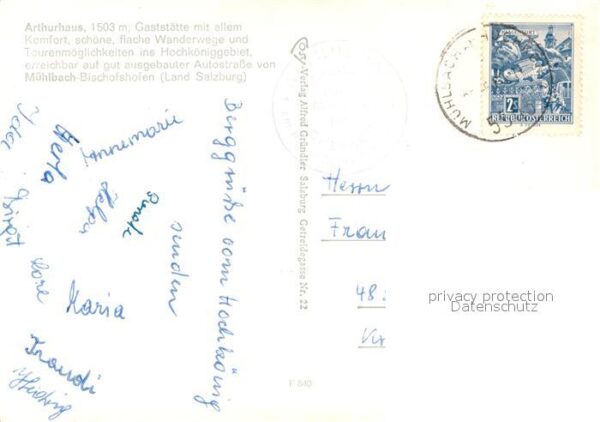 Arthurhaus, 1503 m, Gaststätte mit allem
Komfort, schöne, flache Wanderwege und
Tourenmöglichkeiten ins Hochköniggebiet,
erreichbar auf gut ausgebauter Autostraße von
Mühlbach-Bischofshofen (Land Salzburg)
Berggrüße vom Hochkönig
senden
Annemarie
Herta
Helga
Birgit
Lore
Maria
Traudi
Hedwig
Verlag Alfred Gründler Salzburg Getreidegasse Nr. 22
F 540
MÜHLBACH
2S
REPUBLIK ÖSTERREICH
Herrn
Frau
48
privacy protection
Datenschutz